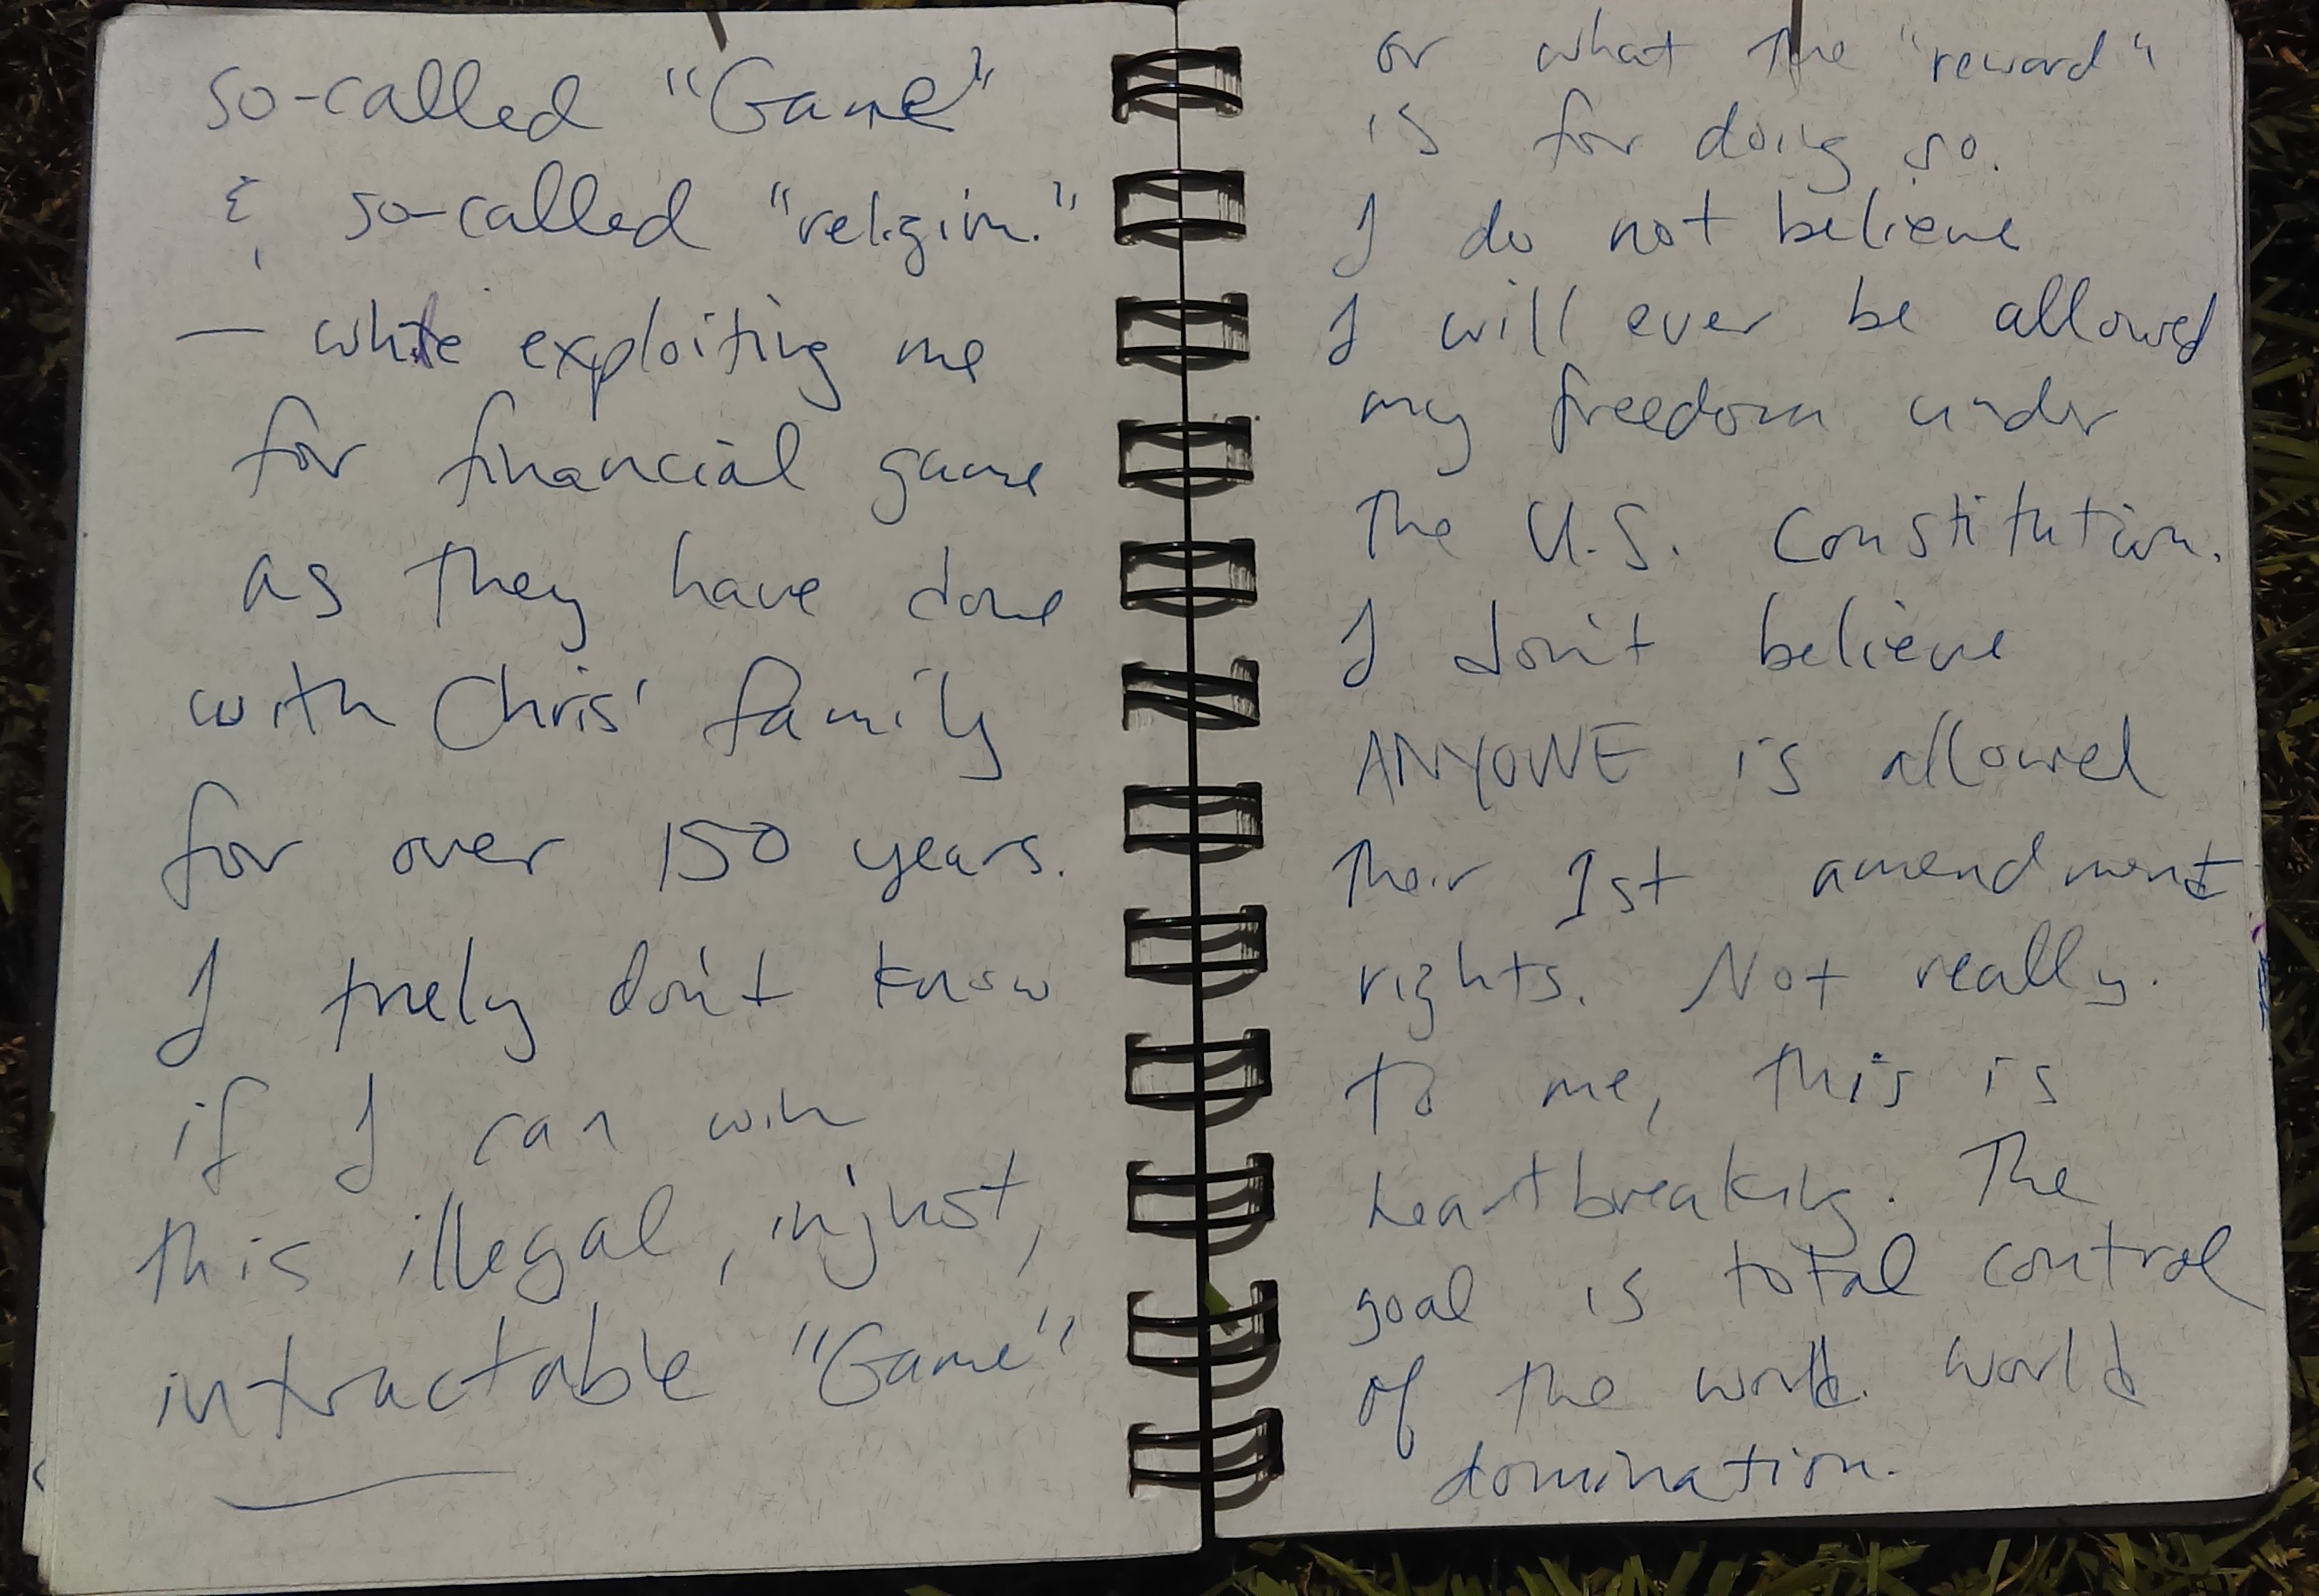 so-called "Game"
& so-called "religion."
— while exploiting me
for financial game
as they have done
with Chris' family
for over 150 years.
I truely don't know
if I can win
this illegal, injust,
intractable "Game"
or what the "reward"
is for doing so.
I do not believe
I will ever be allowed
my freedom under
the U.S. Constitution.
I don't believe
ANYONE is allowed
their 1st amendment
rights. Not really.
To me, this is
heartbreaking. The
goal is total control
of the world. World
domination.